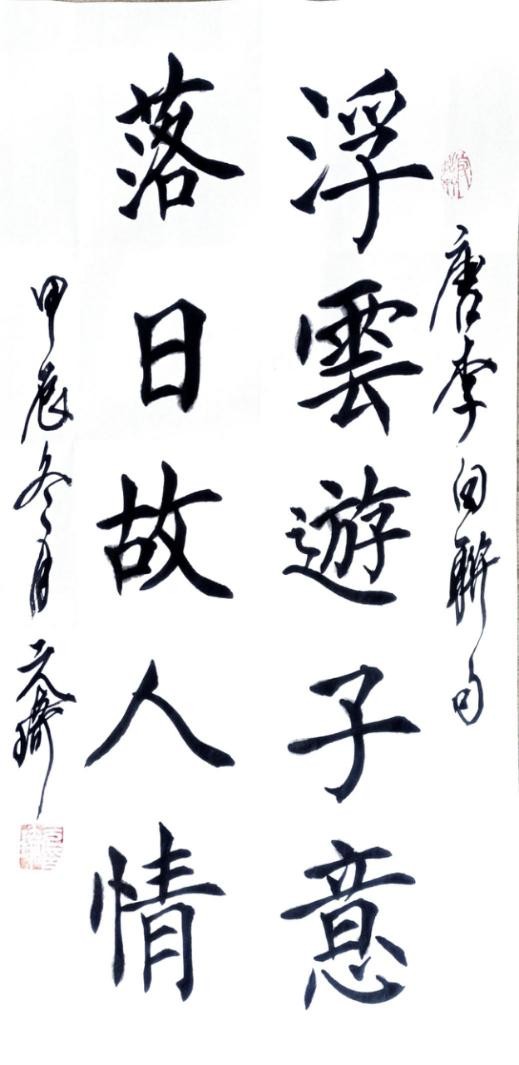 唐李白聯句
浮雲遊子意
落日故人情
甲辰冬月